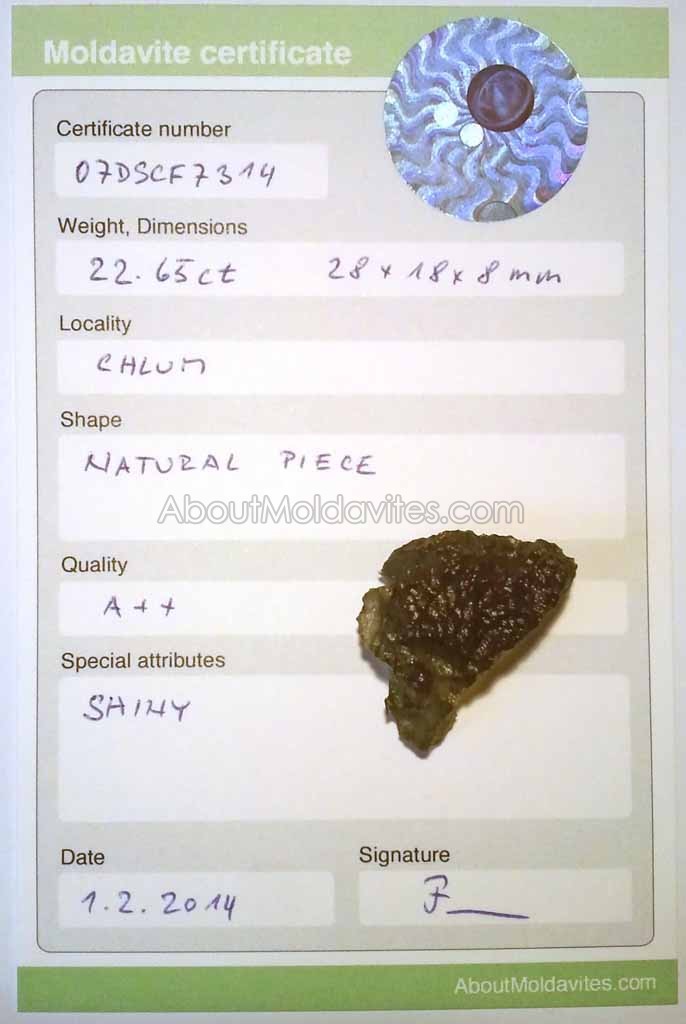 Moldavite certificate
Certificate number
07DSCF7314
Weight, Dimensions
22.65ct 28 x 18 x 8 mm
Locality
CHLUM
Shape
NATURAL PIECE
AboutMoldavites.com
Quality
A++
Special attributes
SHINY
Date Signature
1.2.2014
AboutMoldavites.com